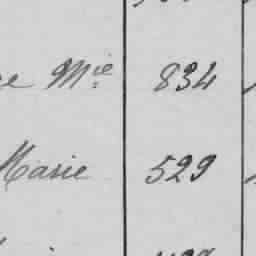 Mie 834
Marie 529